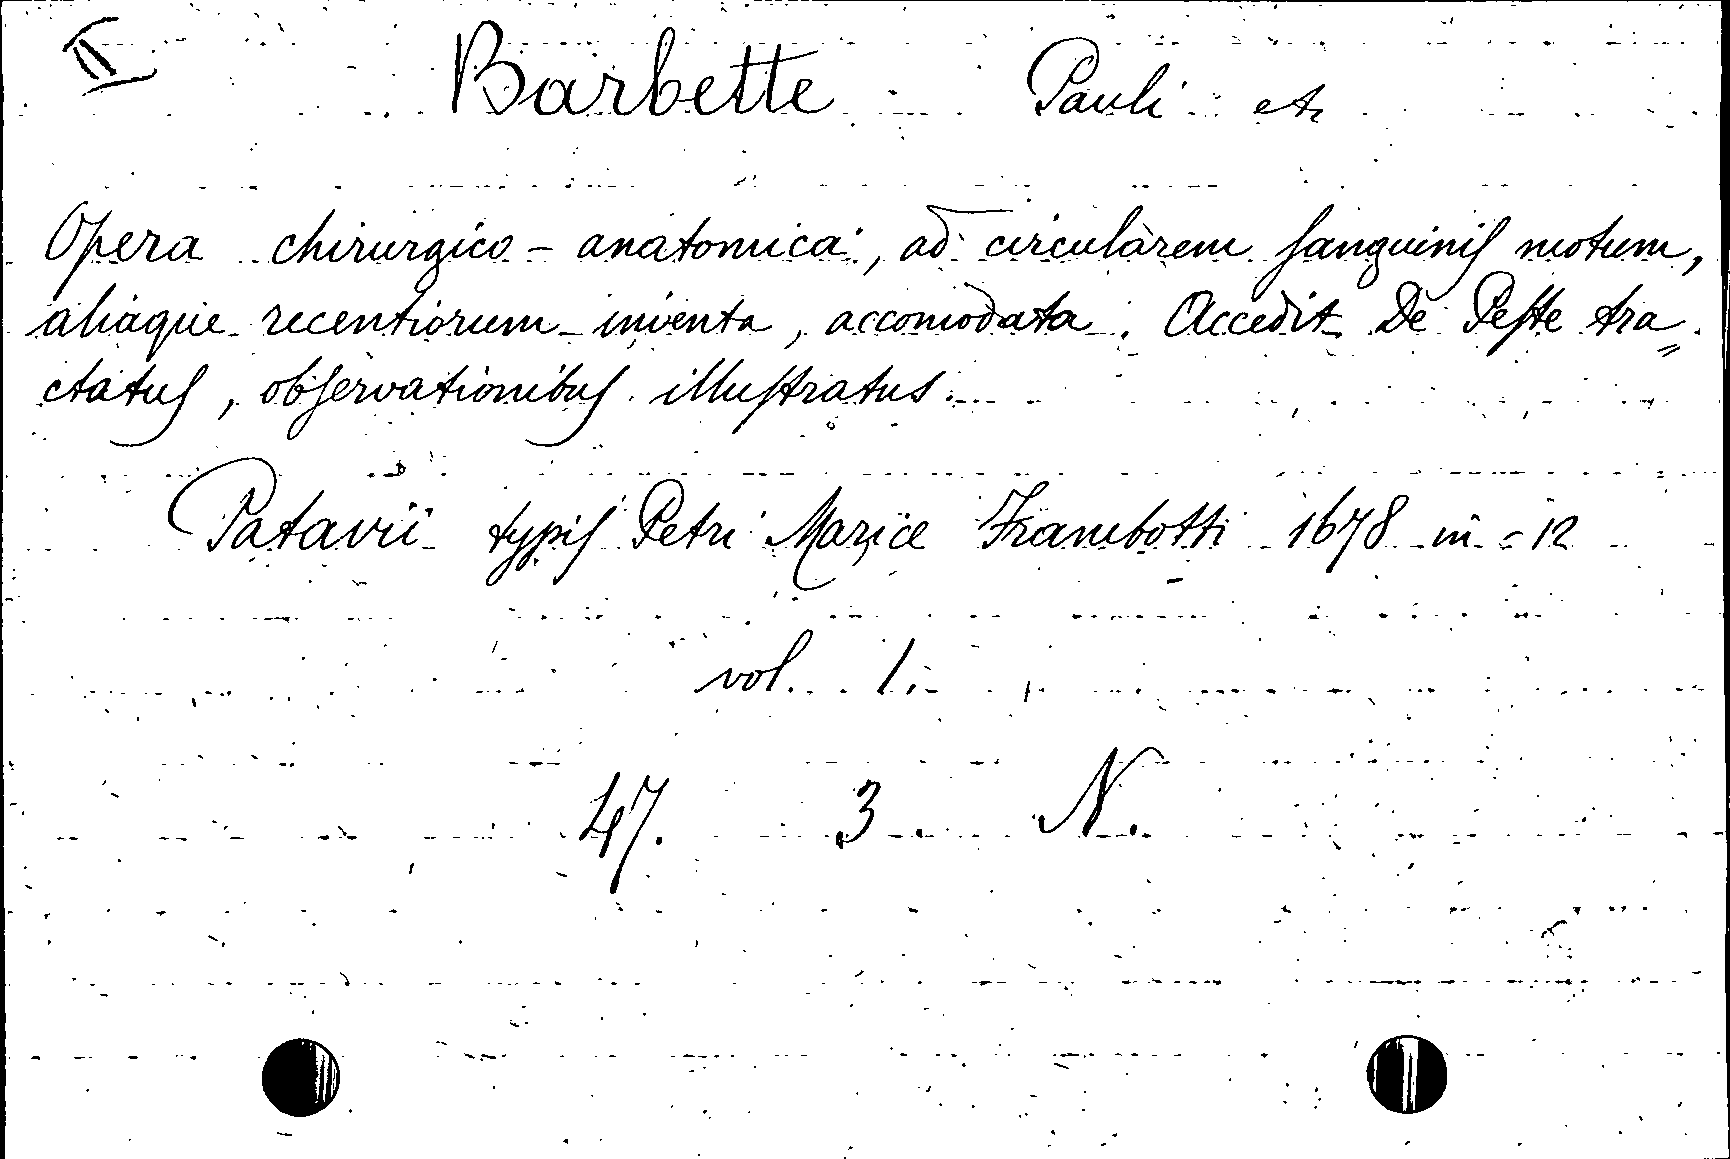 II
Barbette Pauli etc
Opera chirurgico-anatomica, ad circularem sanguinis motum,
aliaque recentiorum inventa, accomodata. Accedit De Peste tra=
ctatus, observationibus illustratus.
Patavii typis Petri Mariæ Frambotti 1678 in-12
vol. 1.
47. 3. N.